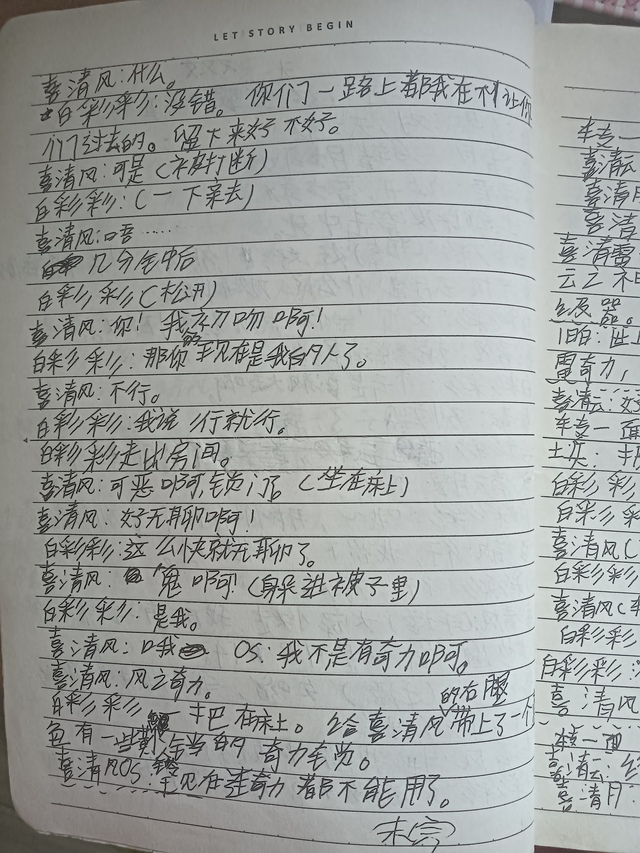 LET STORY BEGIN
喜清风:什么。
白彩彩:没错。你们一路上都我在不让你
们过去的。留下来好不好。
喜清风:可是(被打断)
白彩彩:(一下亲去)
喜清风:唔……
几分钟后
白彩彩(松开)
喜清风:你!我的初吻啊!
白彩彩:那你现在是我的人了。
喜清风:不行。
白彩彩:我说行就行。
白彩彩走出房间。
喜清风:可恶啊,锁门了。(坐在床上)
喜清风:好无聊啊!
白彩彩:这么快就无聊了。
喜清风:鬼啊!(躲进被子里)
白彩彩:是我。
喜清风:哦 OS:我不是有奇力啊。
喜清风:风之奇力。
白彩彩 把在床上。给喜清风的右腿带上了一个
有一些 的奇力
喜清风OS:现在连奇力都不能用了。
未完
车壹一
喜清云
喜清
喜清
喜清雷
云之不
级器。
雷奇力,
喜清云:好
车壹一面
白彩彩
白彩彩
喜清风(
白彩彩
喜清风(
白彩彩
白彩彩:
喜清风
喜清云:
喜清